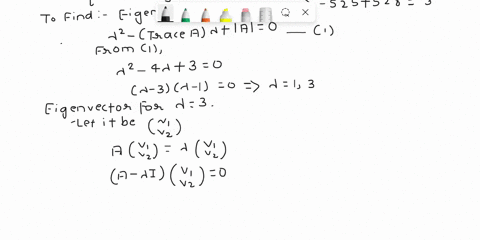 To Find:- Eigen -525+528 = 3
λ² - (Trace A) λ + |A| = 0 — (1)
From (1),
λ² - 4λ + 3 = 0
(λ-3)(λ-1) = 0 => λ = 1, 3
Eigenvector for λ = 3.
- Let it be (v₁ v₂)
A (v₁ v₂) = λ (v₁ v₂)
(A - λI) (v₁ v₂) = 0